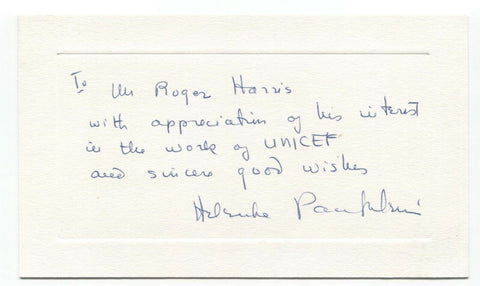 To
Mr Roger Harris
with appreciation of his interest
in the work of UNICEF
and sincere good wishes